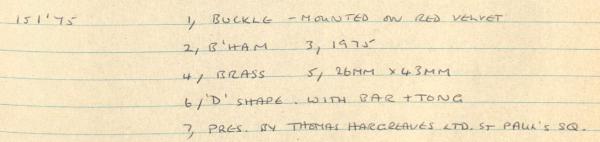 151'75 1, BUCKLE - MOUNTED ON RED VELVET
2, B'HAM 3, 1975
4, BRASS 5, 26MM x 43MM
6, 'D' SHAPE. WITH BAR + TONG
7, PRES. BY THOMAS HARGREAVES LTD. ST PAUL'S SQ.